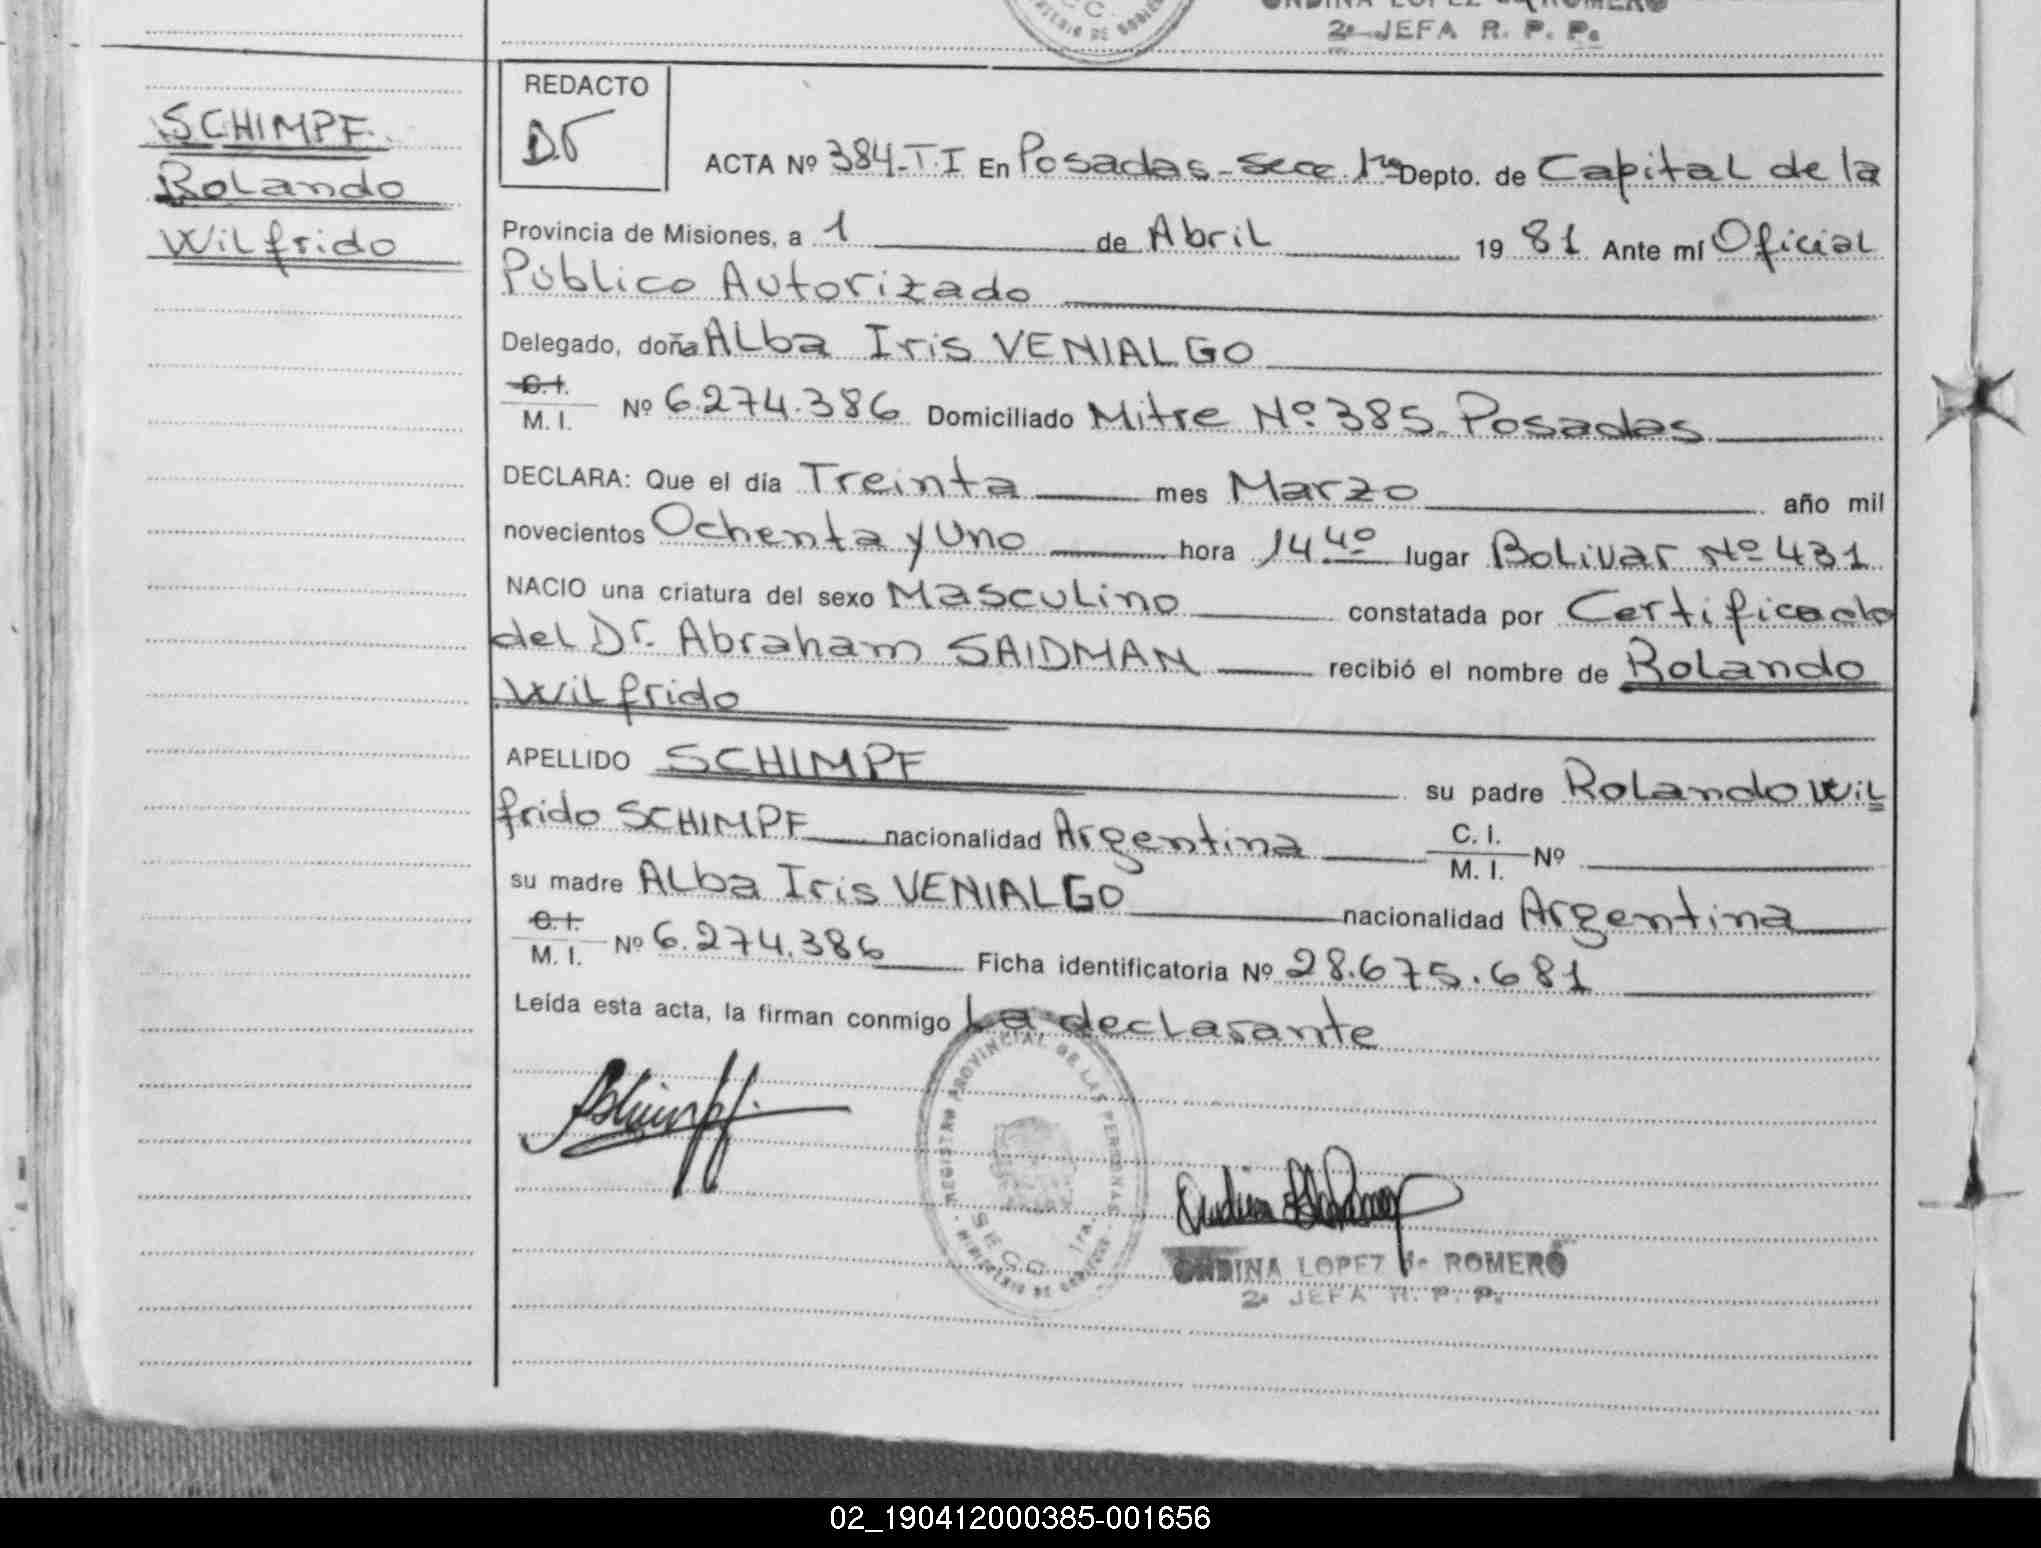 ONDINA LOPEZ de ROMERO
2a JEFA R. P. P.
SCHIMPF
Rolando
Wilfrido
REDACTO
ACTA Nº 384-T.I En Posadas-Secc. 1ra Depto. de Capital de la
Provincia de Misiones, a 1 de Abril 19 81 Ante mí Oficial
Publico Autorizado
Delegado, doña Alba Iris VENIALGO
C.I.
M. I. Nº 6.274.386 Domiciliado Mitre Nº 385. Posadas
DECLARA: Que el día Treinta mes Marzo año mil
novecientos Ochenta y Uno hora 14 40 lugar Bolivar Nº 431
NACIO una criatura del sexo Masculino constatada por Certificado
del Dr. Abraham SAIDMAN recibió el nombre de Rolando
Wilfrido
APELLIDO SCHIMPF su padre Rolando Wil
frido SCHIMPF nacionalidad Argentina C. I.
M. I. Nº
su madre Alba Iris VENIALGO nacionalidad Argentina
C.I.
M. I. Nº 6.274.386 Ficha identificatoria Nº 28.675.681
Leída esta acta, la firman conmigo La declarante
REGISTRO PROVINCIAL DE LAS PERSONAS
SECC. 1ra.
MINISTERIO DE GOBIERNO
ONDINA LOPEZ de ROMERO
2a JEFA R. P. P.
02_190412000385-001656